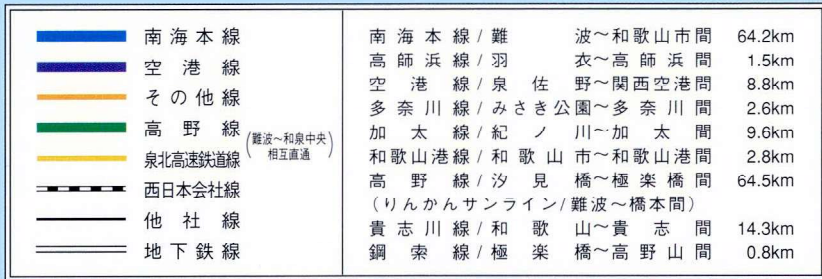 南海本線
空港線
その他線
高野線
泉北高速鉄道線
(難波～和泉中央
相互直通)
西日本会社線
他社線
地下鉄線
南海本線/難波～和歌山市間 64.2km
高師浜線/羽衣～高師浜間 1.5km
空港線/泉佐野～関西空港間 8.8km
多奈川線/みさき公園～多奈川間 2.6km
加太線/紀ノ川～加太間 9.6km
和歌山港線/和歌山市～和歌山港間 2.8km
高野線/汐見橋～極楽橋間 64.5km
(りんかんサンライン/難波～橋本間)
貴志川線/和歌山～貴志間 14.3km
鋼索線/極楽橋～高野山間 0.8km